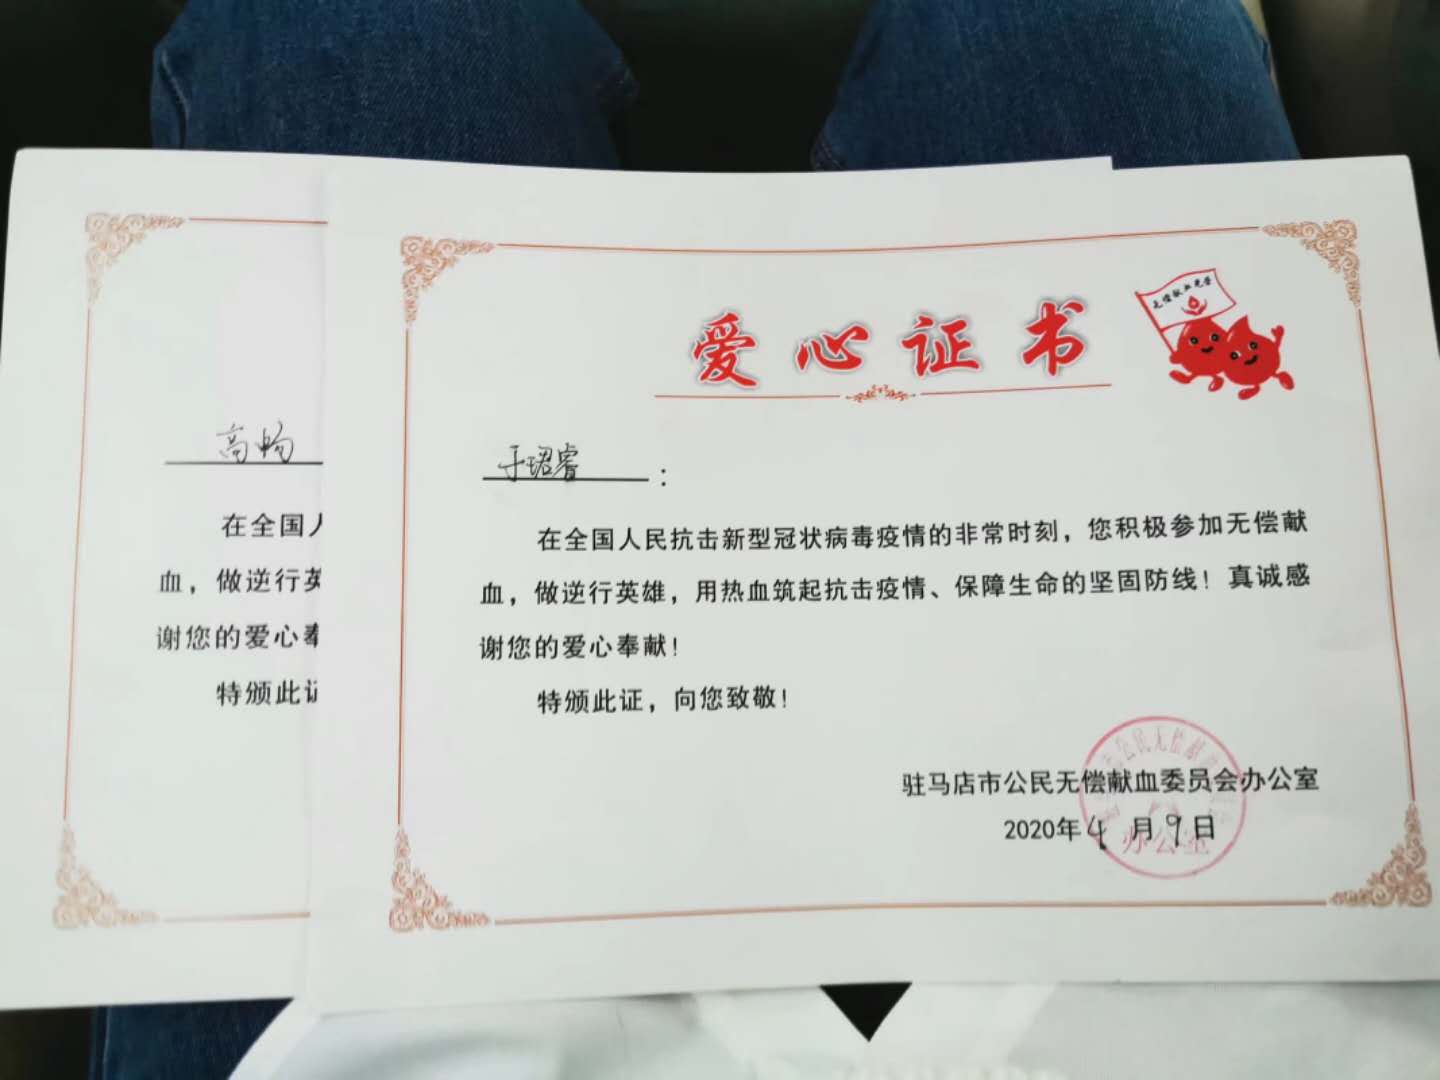 爱心证书
无偿献血光荣
于珺睿：
在全国人民抗击新型冠状病毒疫情的非常时刻，您积极参加无偿献
血，做逆行英雄，用热血筑起抗击疫情、保障生命的坚固防线！真诚感
谢您的爱心奉献！
特颁此证，向您致敬！
驻马店市公民无偿献血委员会办公室
2020年4月9日
公民无偿献
办公室
高畅
在全国人
血，做逆行英
谢您的爱心奉
特颁此证